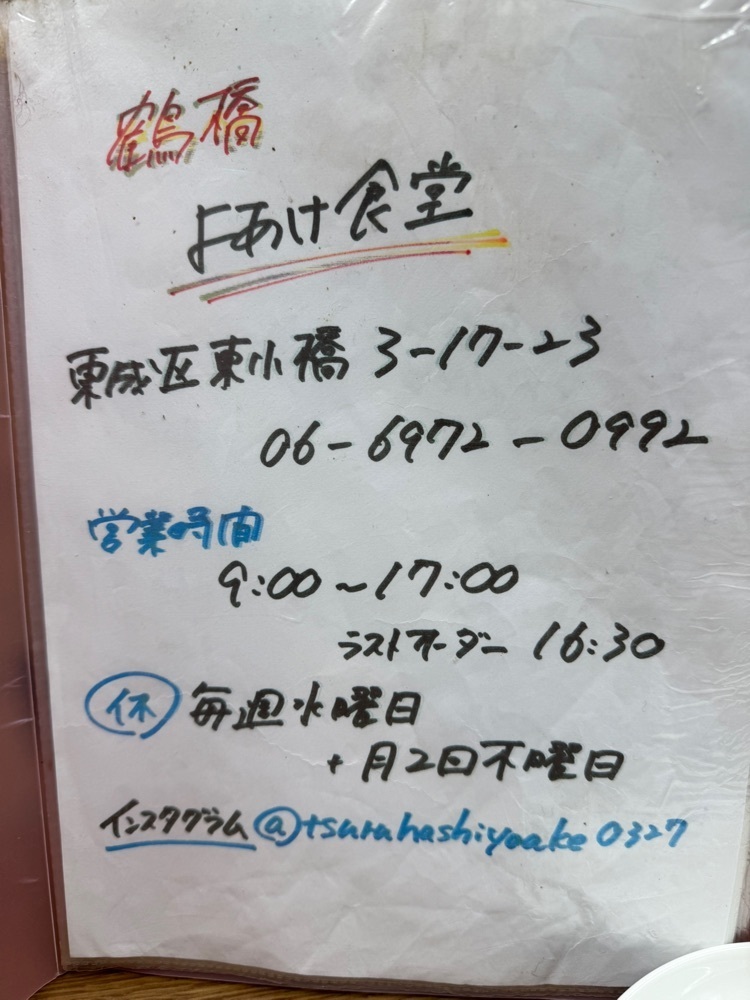 鶴橋
よあけ食堂
東成区東小橋 3-17-23
06-6972-0992
営業時間
9:00～17:00
ラストオーダー 16:30
休 毎週水曜日
+月2回不曜日
インスタグラム @tsuruhashiyoake0327